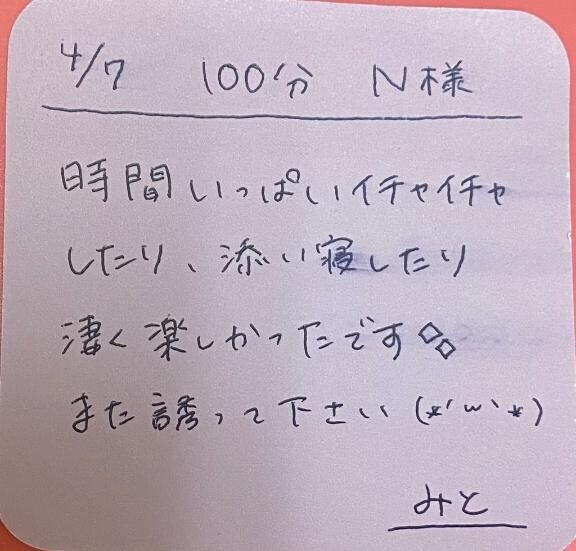 4/7 100分 N様
時間いっぱいイチャイチャ
したり、添い寝したり
凄く楽しかったです◇◇
また誘って下さい(*´ω`*)
みと